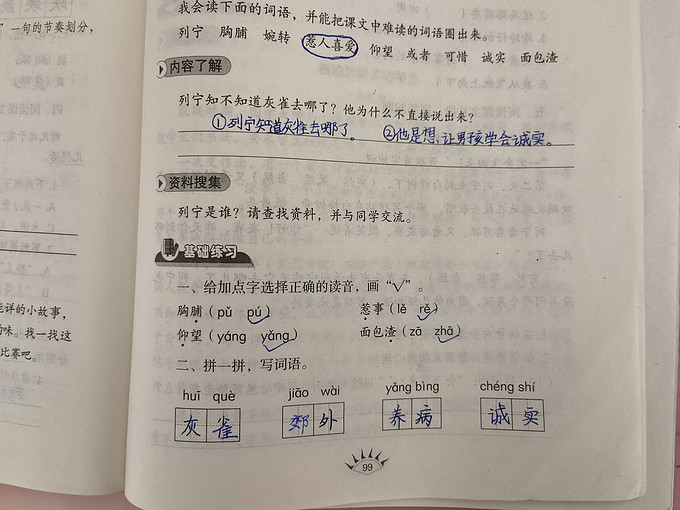 ”一句的节奏划分，
我会读下面的词语，并能把课文中难读的词语圈出来。
列宁 胸脯 婉转 惹人喜爱 仰望 或者 可惜 诚实 面包渣
内容了解
列宁知不知道灰雀去哪了？他为什么不直接说出来？
①列宁知道灰雀去哪了。 ②他是想让男孩学会诚实。
资料搜集
列宁是谁？请查找资料，并与同学交流。
基础练习
一、给加点字选择正确的读音，画“√”。
胸脯（pǔ pú） 惹事（lě rě）
仰望（yáng yǎng） 面包渣（zā zhā）
二、拼一拼，写词语。
huī què jiāo wài yǎng bìng chéng shí
灰雀 郊外 养病 诚实
99
详的小故事，
味。找一找这
比赛吧。